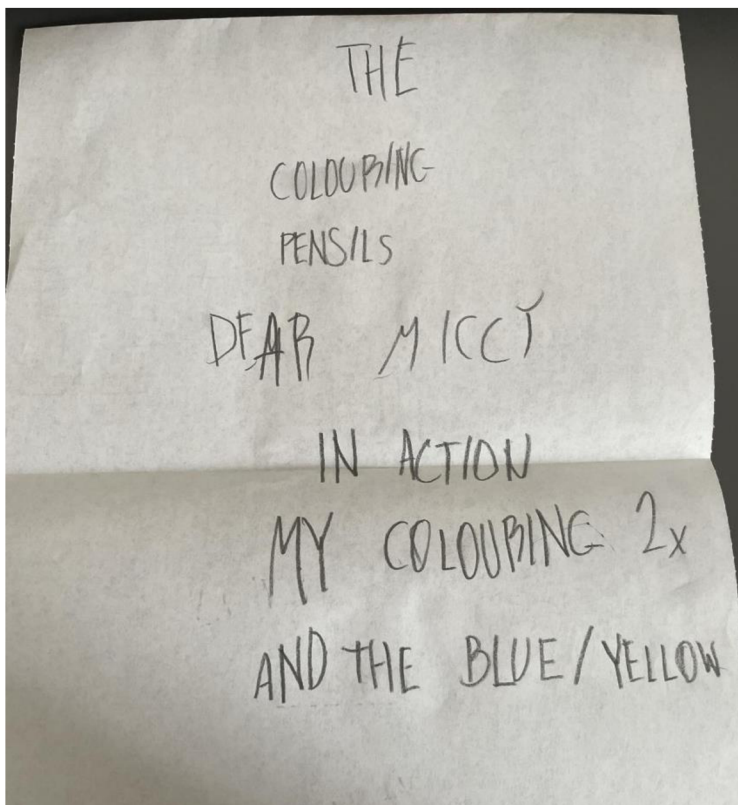 THE
COLOURING
PENSILS
DEAR MICCY
IN ACTION
MY COLOURING 2x
AND THE BLUE/YELLOW